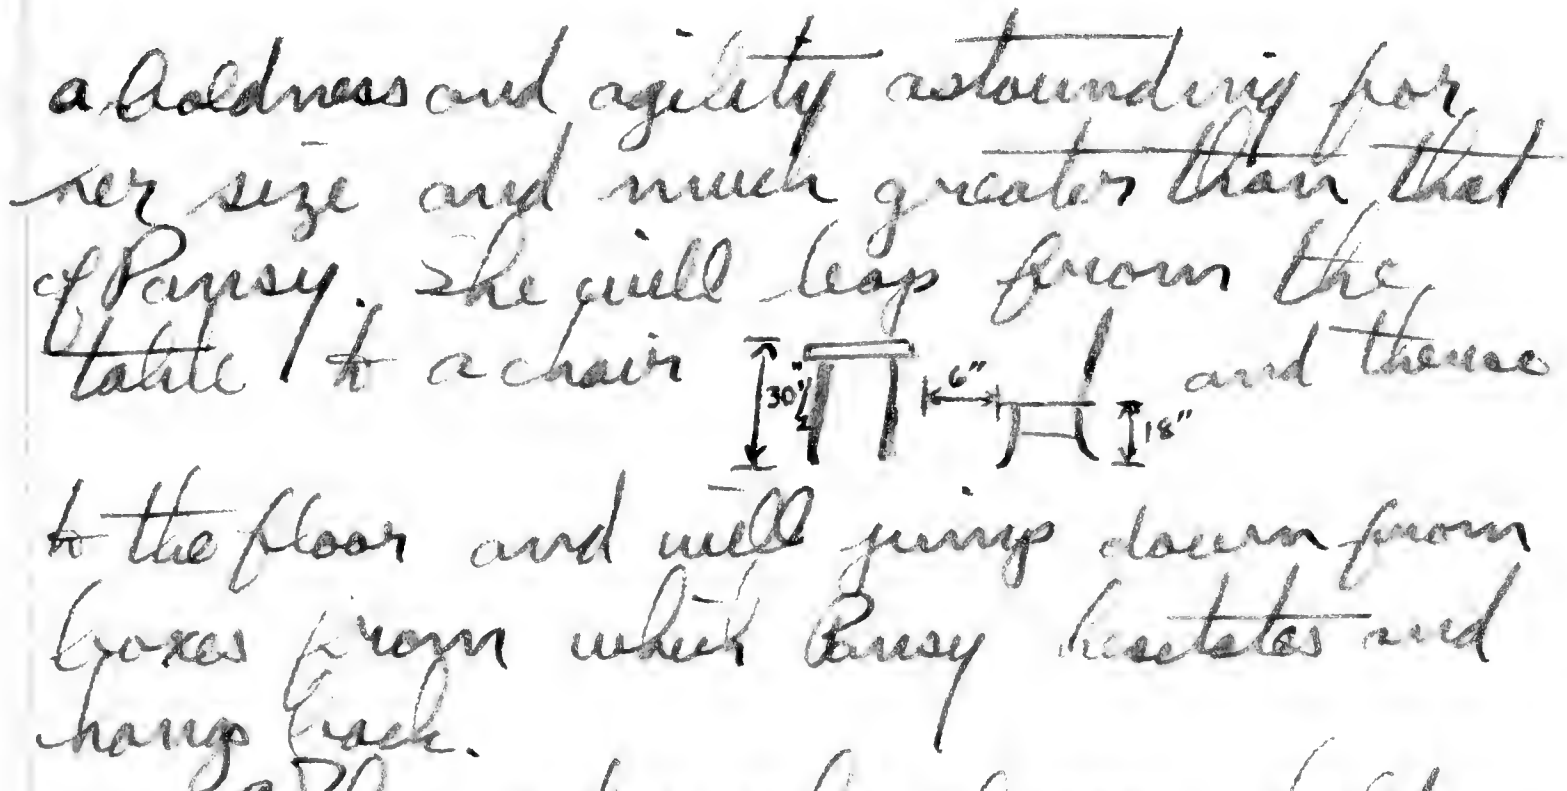 a boldness and agility astounding for
her size and much greater than that
of Pansy. She will leap from the
table to a chair 30½" 6" 18" and thence
to the floor and will jump down from
boxes from which Pansy hesitates and
hangs back.